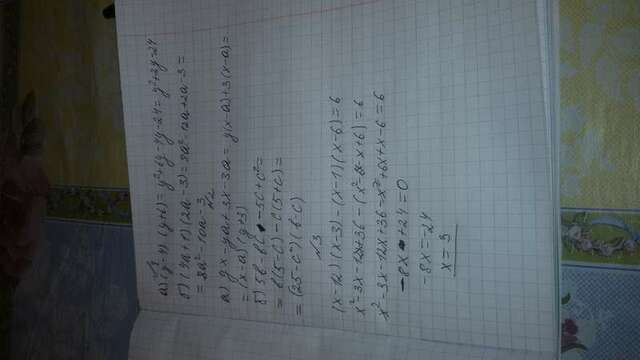 №1
а) (y-4)·(y+6)=y²+6y-4y-24=y²+2y-24
б) (4a+1)(2a-3)=8a²-12a+2a-3=
=8a²-10a-3
№2
а) yx-ya+3x-3a=y(x-a)+3(x-a)=
=(x-a)(y+3)
б) 5b-bc -5c+c²=
=b(5-c)-c(5+c)=
=(25-c²)(b-c)
№3
(x-12)(x-3)-(x-1)(x-6)=6
x²-3x-12x+36-(x²-6x-x+6)=6
x²-3x-12x+36-x²+6x+x-6=6
-8x +24=0
-8x=-24
x=3